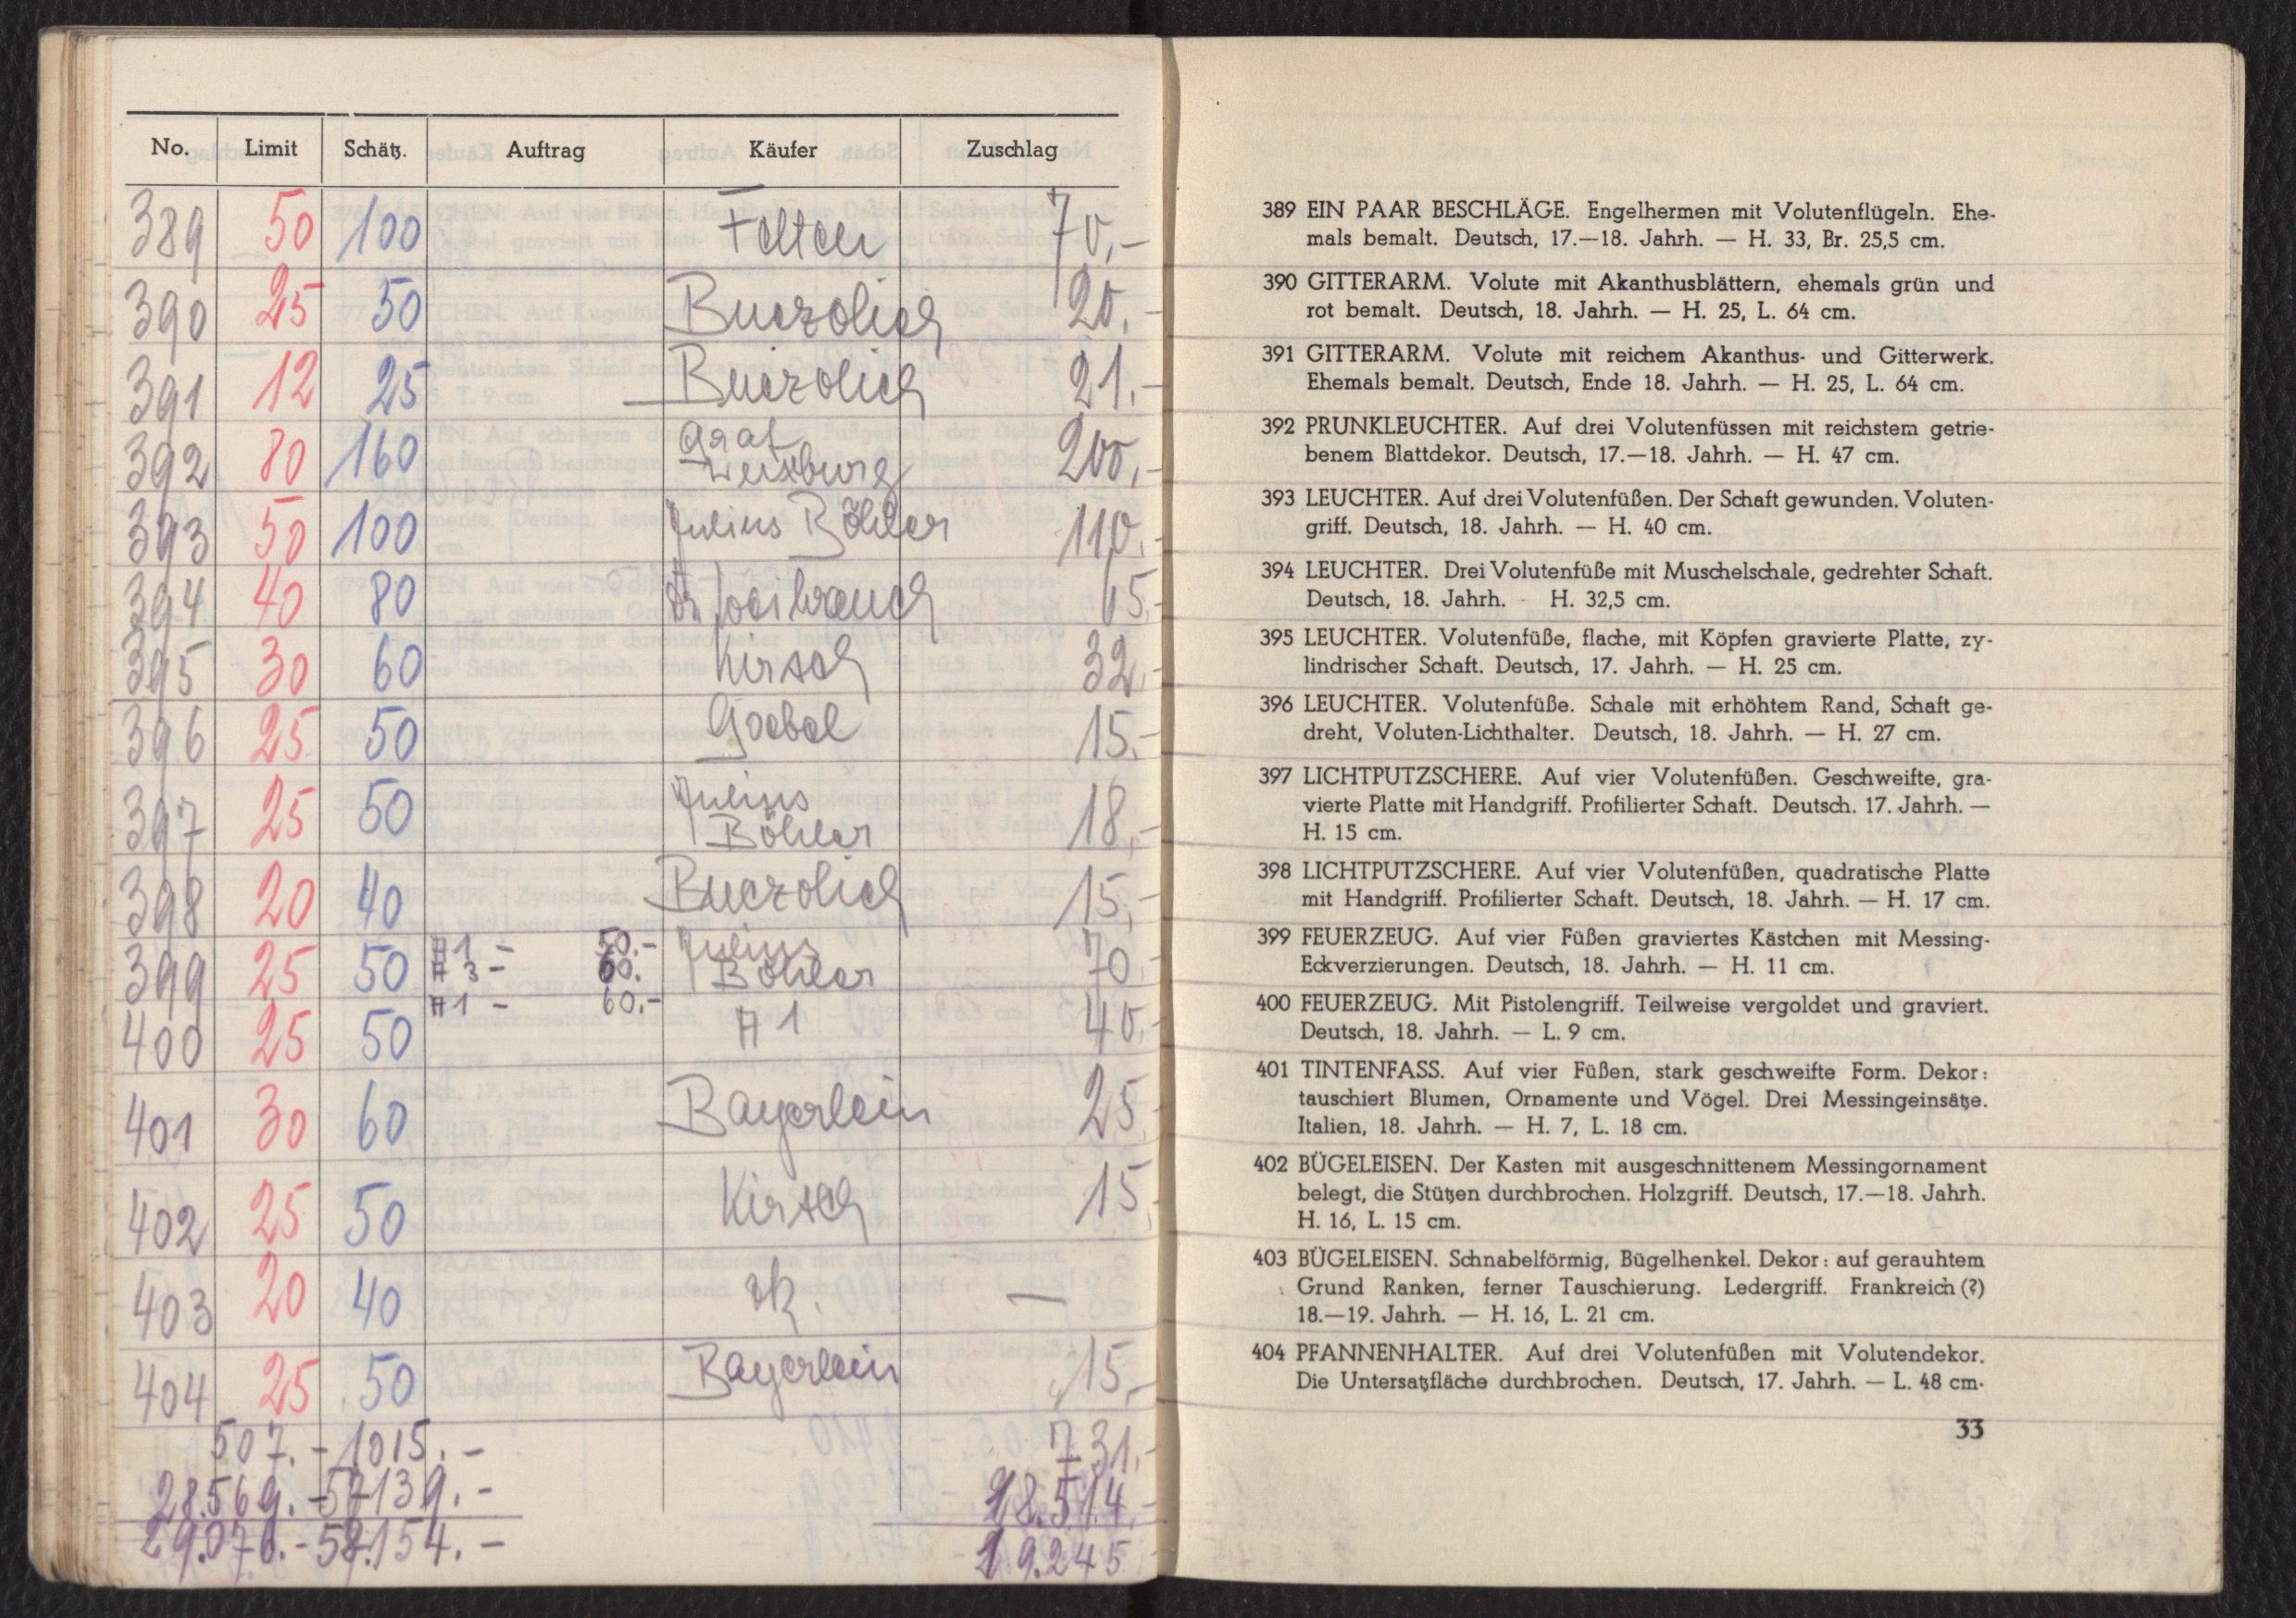 No. Limit Schätz. Auftrag Käufer Zuschlag
389 50 100 Felten 70,-
390 25 50 Buczolich 20,-
391 12 25 Buczolich 21.-
392 80 160 Graf 200,-
393 50 100 Julius Böhler 110,-
394 40 80 Dr 65,-
395 30 60 Kirsch 32,-
396 25 50 Goebel 15.-
397 25 50 Julius Böhler 18,-
398 20 40 Buczolich 15,-
399 25 50 A 1 - 50.- Julius Böhler 70,-
A 3 - 60.
400 25 50 A 1 - 60,- A 1 40,-
401 30 60 Bayerlein 25,-
402 25 50 Kirsch 15,-
403 20 40 zk. —
404 25 50 Bayerlein 15,-
507.- 1015.- 731,-
28.569.- 57139.- 18.514,-
29.076.- 58.154.- 19.245
389 EIN PAAR BESCHLÄGE. Engelhermen mit Volutenflügeln. Ehe-
mals bemalt. Deutsch, 17.—18. Jahrh. — H. 33, Br. 25,5 cm.
390 GITTERARM. Volute mit Akanthusblättern, ehemals grün und
rot bemalt. Deutsch, 18. Jahrh. — H. 25, L. 64 cm.
391 GITTERARM. Volute mit reichem Akanthus- und Gitterwerk.
Ehemals bemalt. Deutsch, Ende 18. Jahrh. — H. 25, L. 64 cm.
392 PRUNKLEUCHTER. Auf drei Volutenfüssen mit reichstem getrie-
benem Blattdekor. Deutsch, 17.—18. Jahrh. — H. 47 cm.
393 LEUCHTER. Auf drei Volutenfüßen. Der Schaft gewunden. Voluten-
griff. Deutsch, 18. Jahrh. — H. 40 cm.
394 LEUCHTER. Drei Volutenfüße mit Muschelschale, gedrehter Schaft.
Deutsch, 18. Jahrh. - H. 32,5 cm.
395 LEUCHTER. Volutenfüße, flache, mit Köpfen gravierte Platte, zy-
lindrischer Schaft. Deutsch, 17. Jahrh. — H. 25 cm.
396 LEUCHTER. Volutenfüße. Schale mit erhöhtem Rand, Schaft ge-
dreht, Voluten-Lichthalter. Deutsch, 18. Jahrh. — H. 27 cm.
397 LICHTPUTZSCHERE. Auf vier Volutenfüßen. Geschweifte, gra-
vierte Platte mit Handgriff. Profilierter Schaft. Deutsch. 17. Jahrh. —
H. 15 cm.
398 LICHTPUTZSCHERE. Auf vier Volutenfüßen, quadratische Platte
mit Handgriff. Profilierter Schaft. Deutsch, 18. Jahrh. — H. 17 cm.
399 FEUERZEUG. Auf vier Füßen graviertes Kästchen mit Messing-
Eckverzierungen. Deutsch, 18. Jahrh. — H. 11 cm.
400 FEUERZEUG. Mit Pistolengriff. Teilweise vergoldet und graviert.
Deutsch, 18. Jahrh. — L. 9 cm.
401 TINTENFASS. Auf vier Füßen, stark geschweifte Form. Dekor:
tauschiert Blumen, Ornamente und Vögel. Drei Messingeinsätze.
Italien, 18. Jahrh. — H. 7, L. 18 cm.
402 BÜGELEISEN. Der Kasten mit ausgeschnittenem Messingornament
belegt, die Stützen durchbrochen. Holzgriff. Deutsch, 17.—18. Jahrh.
H. 16, L. 15 cm.
403 BÜGELEISEN. Schnabelförmig, Bügelhenkel. Dekor: auf gerauhtem
Grund Ranken, ferner Tauschierung. Ledergriff. Frankreich (?)
18.—19. Jahrh. — H. 16, L. 21 cm.
404 PFANNENHALTER. Auf drei Volutenfüßen mit Volutendekor.
Die Untersatzfläche durchbrochen. Deutsch, 17. Jahrh. — L. 48 cm.
33